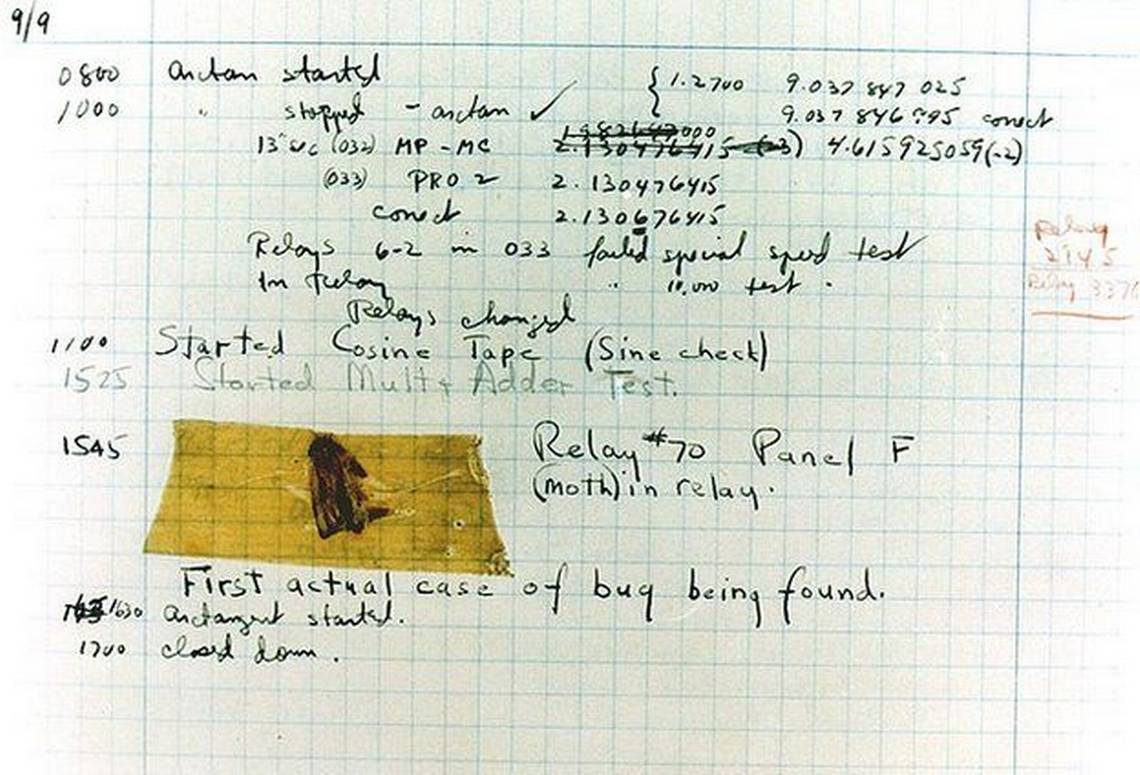 9/9
0800 arctan started { 1.2700 9.037 847 025
1000 " stopped - arctan ✓ 9.037 846 995 correct
13"uc (032) MP - MC 1.982647000
2.130476415 (-3) 4.615925059(-2)
(033) PRO 2 2.130476415
correct 2.130676415
Relays 6-2 in 033 failed special speed test
In Relay " 10,000 test .
Relay
2145
Relay 3370
Relays changed
1100 Started Cosine Tape (Sine check)
1525 Started Mult + Adder Test.
1545 Relay #70 Panel F
(moth) in relay.
First actual case of bug being found.
1630 arctangent started.
1700 closed down .